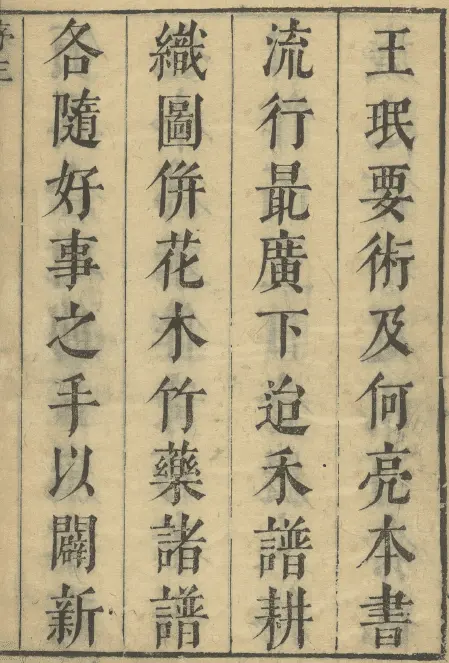 王珉要術及何亮本書
流行最廣下迨禾譜耕
織圖併花木竹藥諸譜
各隨好事之手以闢新